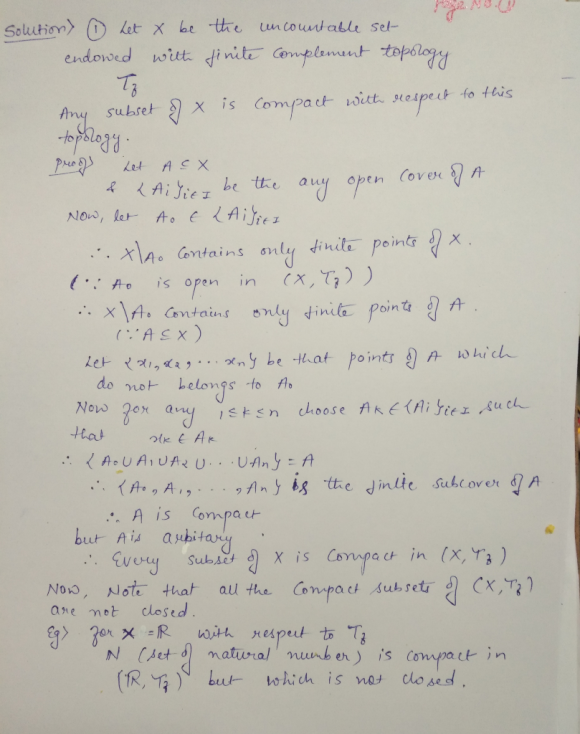 Page No. ①
Solution> ① Let X be the uncountable set
endowed with finite complement topology
T_f
Any subset of X is compact with respect to this
topology.
proof> Let A ⊆ X
& {Ai}i∈I be the any open cover of A
Now, let A₀ ∈ {Ai}i∈I
∴ X\A₀ contains only finite points of X.
(∵ A₀ is open in (X, T_f))
∴ X\A₀ contains only finite points of A.
(∵ A ⊆ X)
Let {x₁, x₂, ... xn} be that points of A which
do not belongs to A₀
Now for any 1≤k≤n choose Ak ∈ {Ai}i∈I such
that xk ∈ Ak
∴ {A₀ ∪ A₁ ∪ A₂ ∪ ... ∪ An} = A
∴ {A₀, A₁, ...., An} is the finite subcover of A
∴ A is compact
but A is arbitary
∴ Every subset of X is compact in (X, T_f)
Now, Note that all the compact subsets of (X, T_f)
are not closed.
Eg> for X = ℝ with respect to T_f
N (set of natural number) is compact in
(ℝ, T_f) but which is not closed.